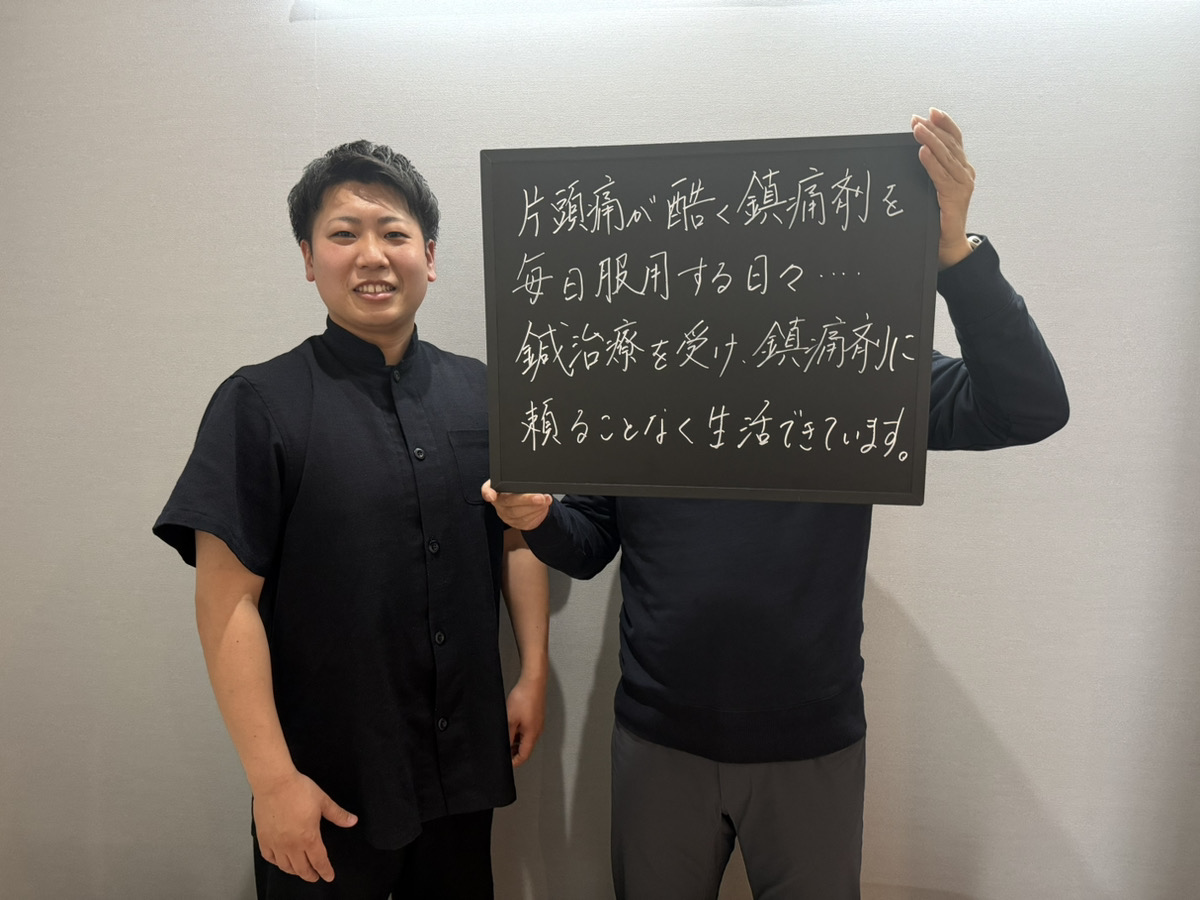 片頭痛が酷く鎮痛剤を
毎日服用する日々....
鍼治療を受け、鎮痛剤に
頼ることなく生活できています。